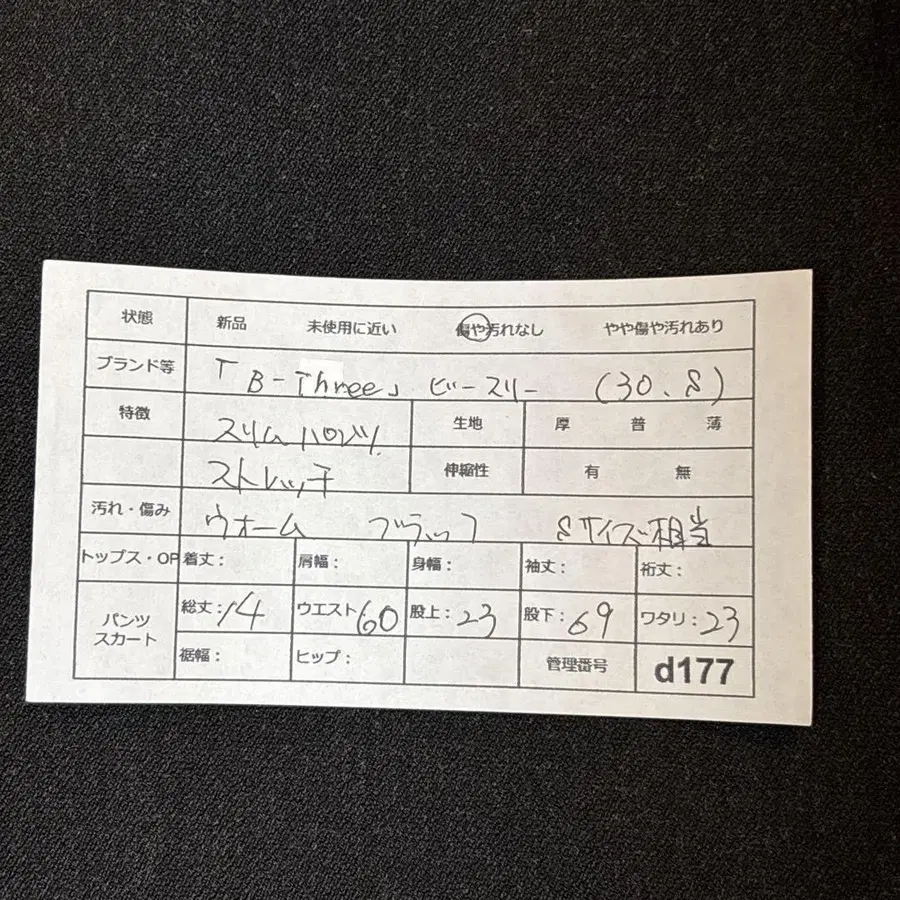 状態 新品 未使用に近い 傷や汚れなし やや傷や汚れあり
ブランド等 「B-Three」 ビースリー (30.S)
特徴 スリムパンツ 生地 厚 普 薄
ストレッチ 伸縮性 有 無
汚れ・傷み ウォーム ブラック Sサイズ相当
トップス・OP 着丈: 肩幅: 身幅: 袖丈: 裄丈:
パンツ スカート 総丈:14 ウエスト60 股上:23 股下:69 ワタリ:23
裾幅: ヒップ: 管理番号 d177